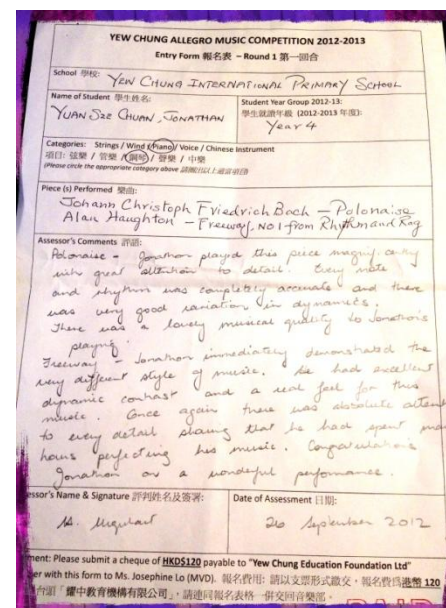 YEW CHUNG ALLEGRO MUSIC COMPETITION 2012-2013
Entry Form 報名表 – Round 1 第一回合
School 學校: YEW CHUNG INTERNATIONAL PRIMARY SCHOOL
Name of Student 學生姓名:
YUAN SZE CHUAN, JONATHAN
Student Year Group 2012-13:
學生就讀年級 (2012-2013 年度):
Year 4
Categories: Strings / Wind / Piano / Voice / Chinese Instrument
項目: 弦樂 / 管樂 / 鋼琴 / 聲樂 / 中樂
(Please circle the appropriate category above 請圈出以上適當項目)
Piece (s) Performed 樂曲:
Johann Christoph Friedrich Bach – Polonaise
Alan Haughton – Freeway, No1 from Rhythm and Rag
Assessor's Comments 評語:
Polonaise – Jonathon played this piece magnificently
with great attention to detail. Every note
and rhythm was completely accurate and there
was very good variation in dynamics.
There was a lovely musical quality to Jonathon's
playing.
Freeway – Jonathon immediately demonstrated the
very different style of music. He had excellent
dynamic contrast and a real feel for this
music. Once again there was absolute attent
to every detail showing that he had spent man
hours perfecting his music. Congratulations
Jonathon on a wonderful performance.
essor's Name & Signature 評判姓名及簽署:
Date of Assessment 日期:
26 September 2012
ment: Please submit a cheque of HKD$120 payable to "Yew Chung Education Foundation Ltd"
er with this form to Ms. Josephine Lo (MVD). 報名費用: 請以支票形式繳交，報名費爲港幣 120
台頭「耀中教育機構有限公司」, 請連同報名表格一併交回音樂部。